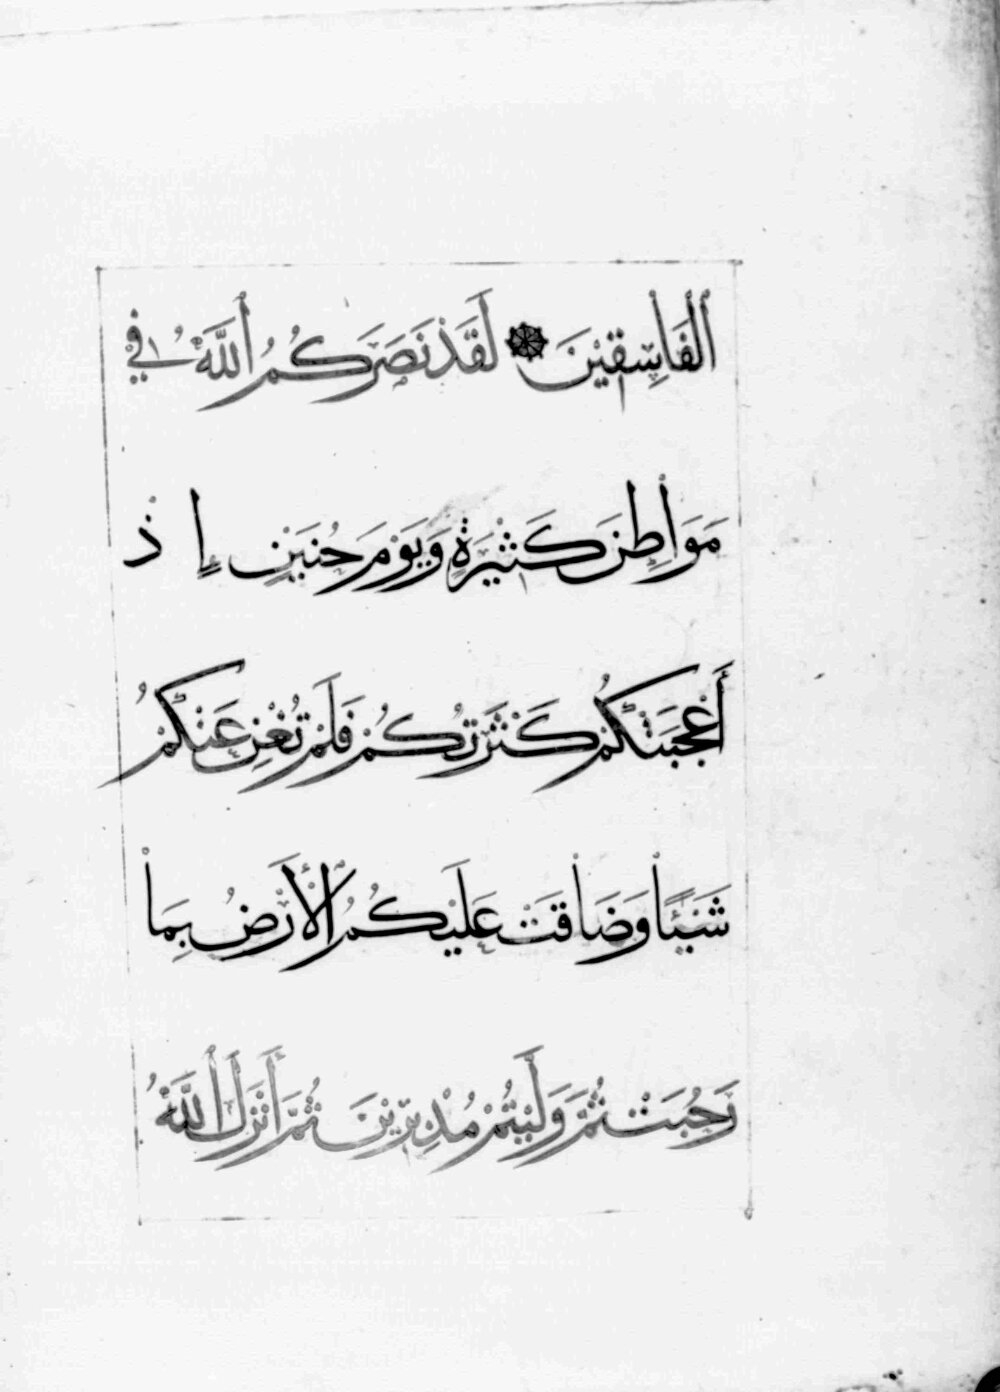 الْفَاسِقِيْنَ ۞ لَقَدْ نَصَرَكُمُ اللَّهُ فِي
مَوَاطِنَ كَثِيْرَةٍ وَيَوْمَ حُنَيْنٍ إِذْ
أَعْجَبَتْكُمْ كَثْرَتُكُمْ فَلَمْ تُغْنِ عَنْكُمْ
شَيْئًا وَضَاقَتْ عَلَيْكُمُ الْأَرْضُ بِمَا
رَحُبَتْ ثُمَّ وَلَّيْتُمْ مُدْبِرِيْنَ ثُمَّ أَنْزَلَ اللَّهُ